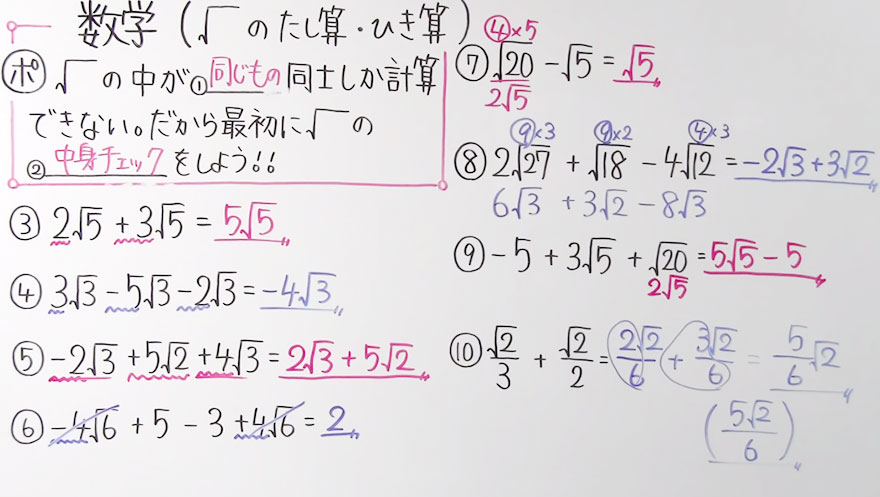 数学（√ のたし算・ひき算）
ポ √ の中が①同じもの同士しか計算
できない。だから最初に√ の
②中身チェックをしよう!!
③ 2√5 + 3√5 = 5√5
④ 3√3 - 5√3 - 2√3 = -4√3
⑤ -2√3 + 5√2 + 4√3 = 2√3 + 5√2
⑥ -4√6 + 5 - 3 + 4√6 = 2
④×5
⑦ √20 - √5 = √5
2√5
⑨×3 ⑨×2 ④×3
⑧ 2√27 + √18 - 4√12 = -2√3 + 3√2
6√3 + 3√2 - 8√3
⑨ -5 + 3√5 + √20 = 5√5 - 5
2√5
⑩ √2/3 + √2/2 = 2√2/6 + 3√2/6 = 5/6√2
(5√2/6)